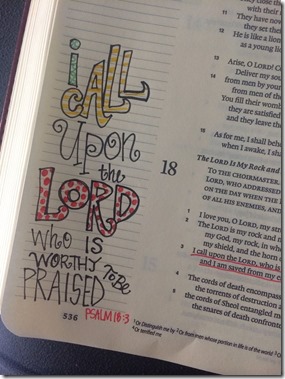 i
CALL
Upon
the
LORD
WHO IS
WORTHY To Be
PRAISED
536
PSALM 18:3
11 They have now
they set the
12 He is like a lion
as a young li
13 Arise, O LORD! C
Deliver my sou
14 from men by your
from men of the
You fill their womb
they are satisfied
and they leave the
15 As for me, I shall beh
when I awake, I sha
The LORD Is My Rock and
18 TO THE CHOIRMASTER.
LORD, WHO ADDRESSED
ON THE DAY WHEN THE
OF ALL HIS ENEMIES, AND
1 I love you, O LORD, my stre
2 The LORD is my rock and my
my God, my rock, in wh
my shield, and the horn
3 I call upon the LORD, who is
and I am saved from my e
4 The cords of death encompass
the torrents of destruction
5 the cords of Sheol entangled m
the snares of death confronte
Or Distinguish me by Or from men whose portion in life is of the world
Or terrified me